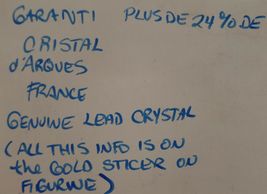 GARANTI PLUS DE 24% DE
CRISTAL
d'ARQUES
FRANCE
GENUINE LEAD CRYSTAL
(ALL THIS INFO IS ON
the GOLD STICER ON
FIGURINE)